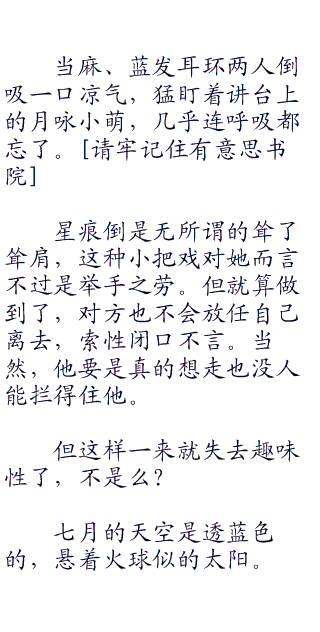 当麻、蓝发耳环两人倒
吸一口凉气，猛盯着讲台上
的月咏小萌，几乎连呼吸都
忘了。[请牢记住有意思书
院]
星痕倒是无所谓的耸了
耸肩，这种小把戏对她而言
不过是举手之劳。但就算做
到了，对方也不会放任自己
离去，索性闭口不言。当
然，他要是真的想走也没人
能拦得住他。
但这样一来就失去趣味
性了，不是么？
七月的天空是透蓝色
的，悬着火球似的太阳。